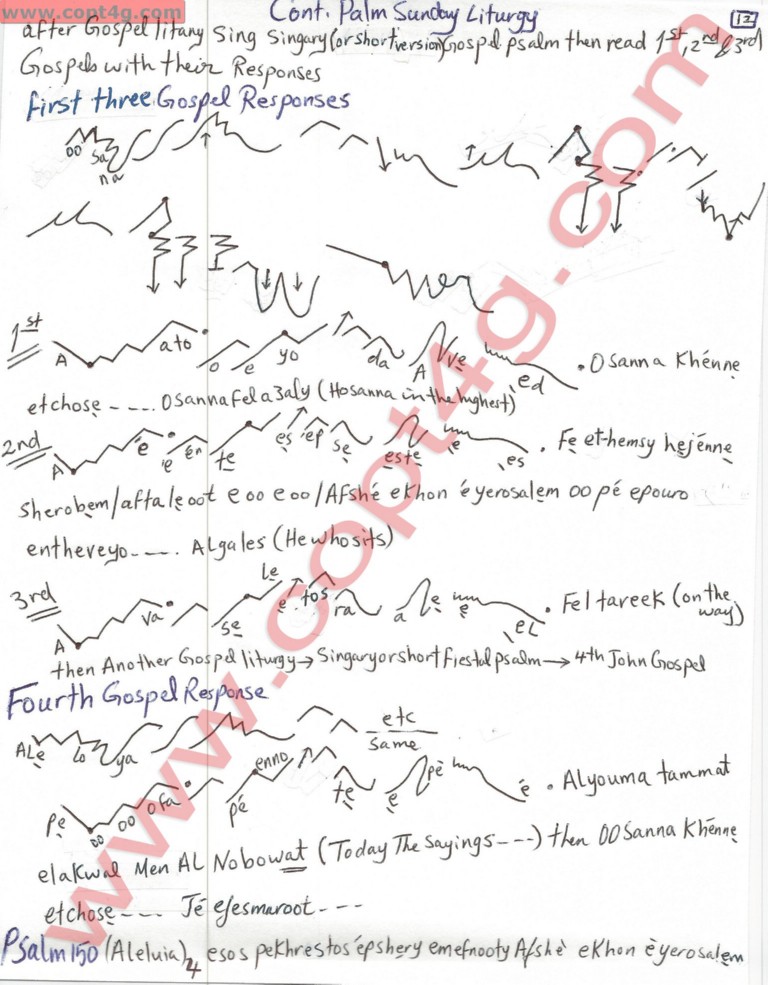 www.copt4g.com
Cont. Palm Sunday Liturgy 12
after Gospel litany Sing Singary (or short version) Gospel psalm then read 1st, 2nd & 3rd
Gospels with their Responses
First three Gospel Responses
oo sa na
1st A ato o e yo da A ve ed . Osanna Khénne
etchose ---- . Osanna Fel a3aly (Hosanna in the highest)
2nd A é 'e én te es 'ep se este e es . Fe et-hemsy hejénne
sherobem/afta le oot e oo e oo / Afshé ekhon é yerosalem oo pé epouro
entheveyo ---- . ALgales (He who sits)
3rd A va se Le e tos ra a e e eL . Fel tareek (on the way)
then Another Gospel liturgy → Singary or short fiestal psalm → 4th John Gospel
Fourth Gospel Response
ALe Lo ya etc same
Pe oo oo ofa pé enno te e pè é . Alyouma tammat
elakwal Men AL Nobowat (Today The sayings ---) then OOsanna Khénne
etchose --- Jé efesmaroot ---
Psalm 150 (Aleluia) 4 esos pekhrestos épshery emefnooty Afshè ekhon è yerosalem
www.copt4g.com